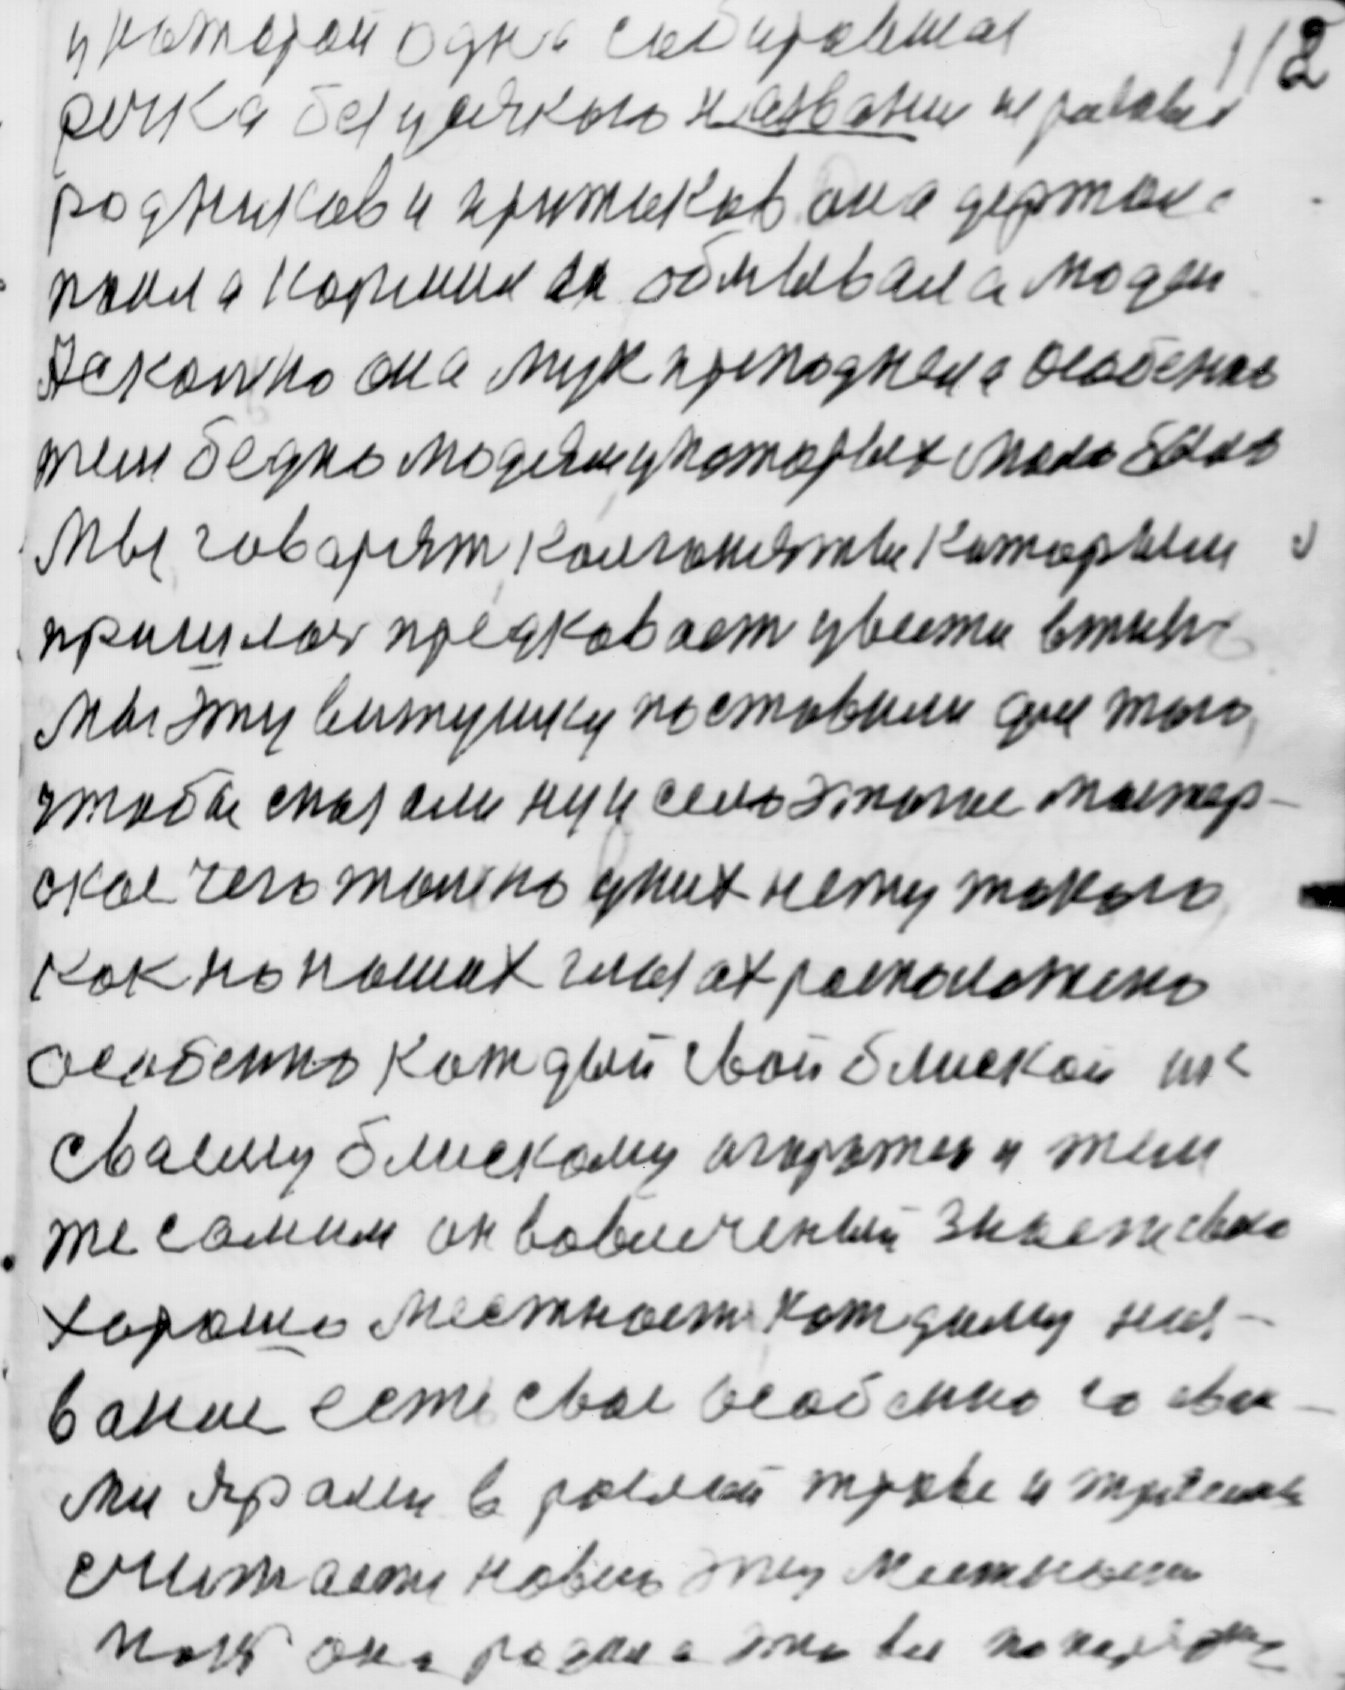 112
у которой одна собиравшая
речка без усякого название и
родников и притиков она держала
поила кормила обмывала людей
Асколко она мук преподнела особенно
тем бедно людям укоторых мало было
Мы говарят колгоняты которым
пришлос предковает цвести
Мы эту витушку поставили для того,
чтобы сказали ну и село этакое мастер-
ское чего толко уних нету такого,
как но наших глазах росположено
особенно каждый свой блиской
своему блискому и тем
же самим он вовлеченый знает свою
хорошо местность каждому наз-
вание есть свое особенно со сваи-
ми ярами в рослой траве и
считаети эту местность
она родила это все